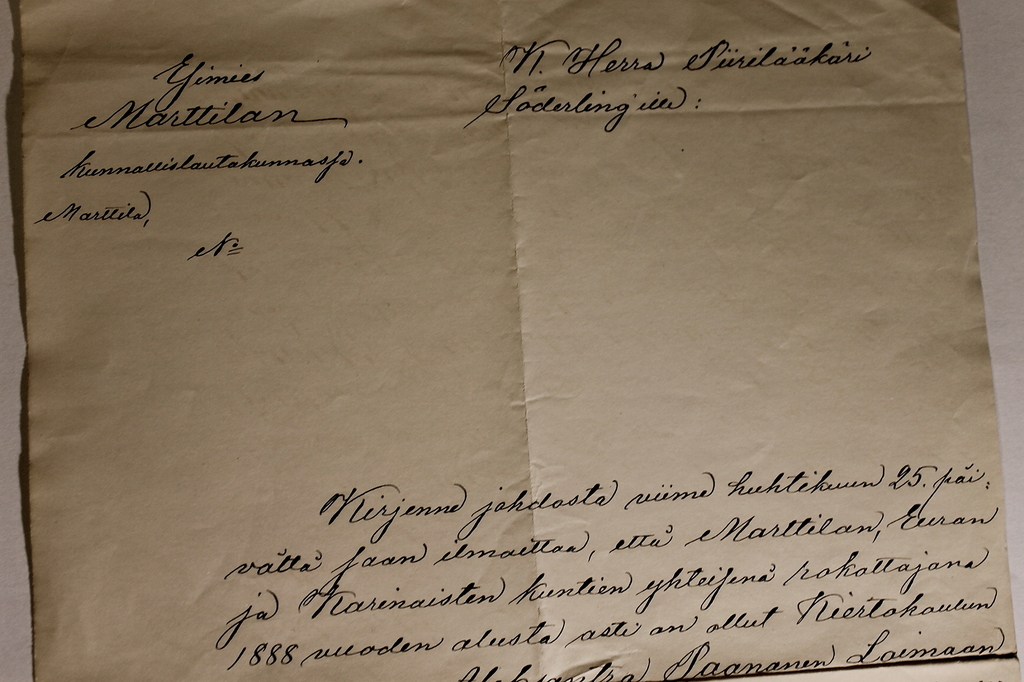 Esimies
Marttilan
kunnallislautakunnassa.
Marttila,
No
Kl. Herra Piirilääkäri
Söderling'ille:
Kirjenne johdosta viime huhtikuun 25. päi:
vältä saan ilmoittaa, että Marttilan, Euran
ja Karinaisten kuntien yhteisenä rokottajana
1888 vuoden alusta asti on ollut Kiertokoulun
Paananen Loimaan